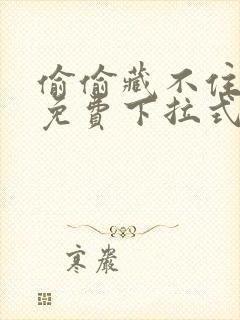 偷偷藏不住
免費下拉式
寒嚴